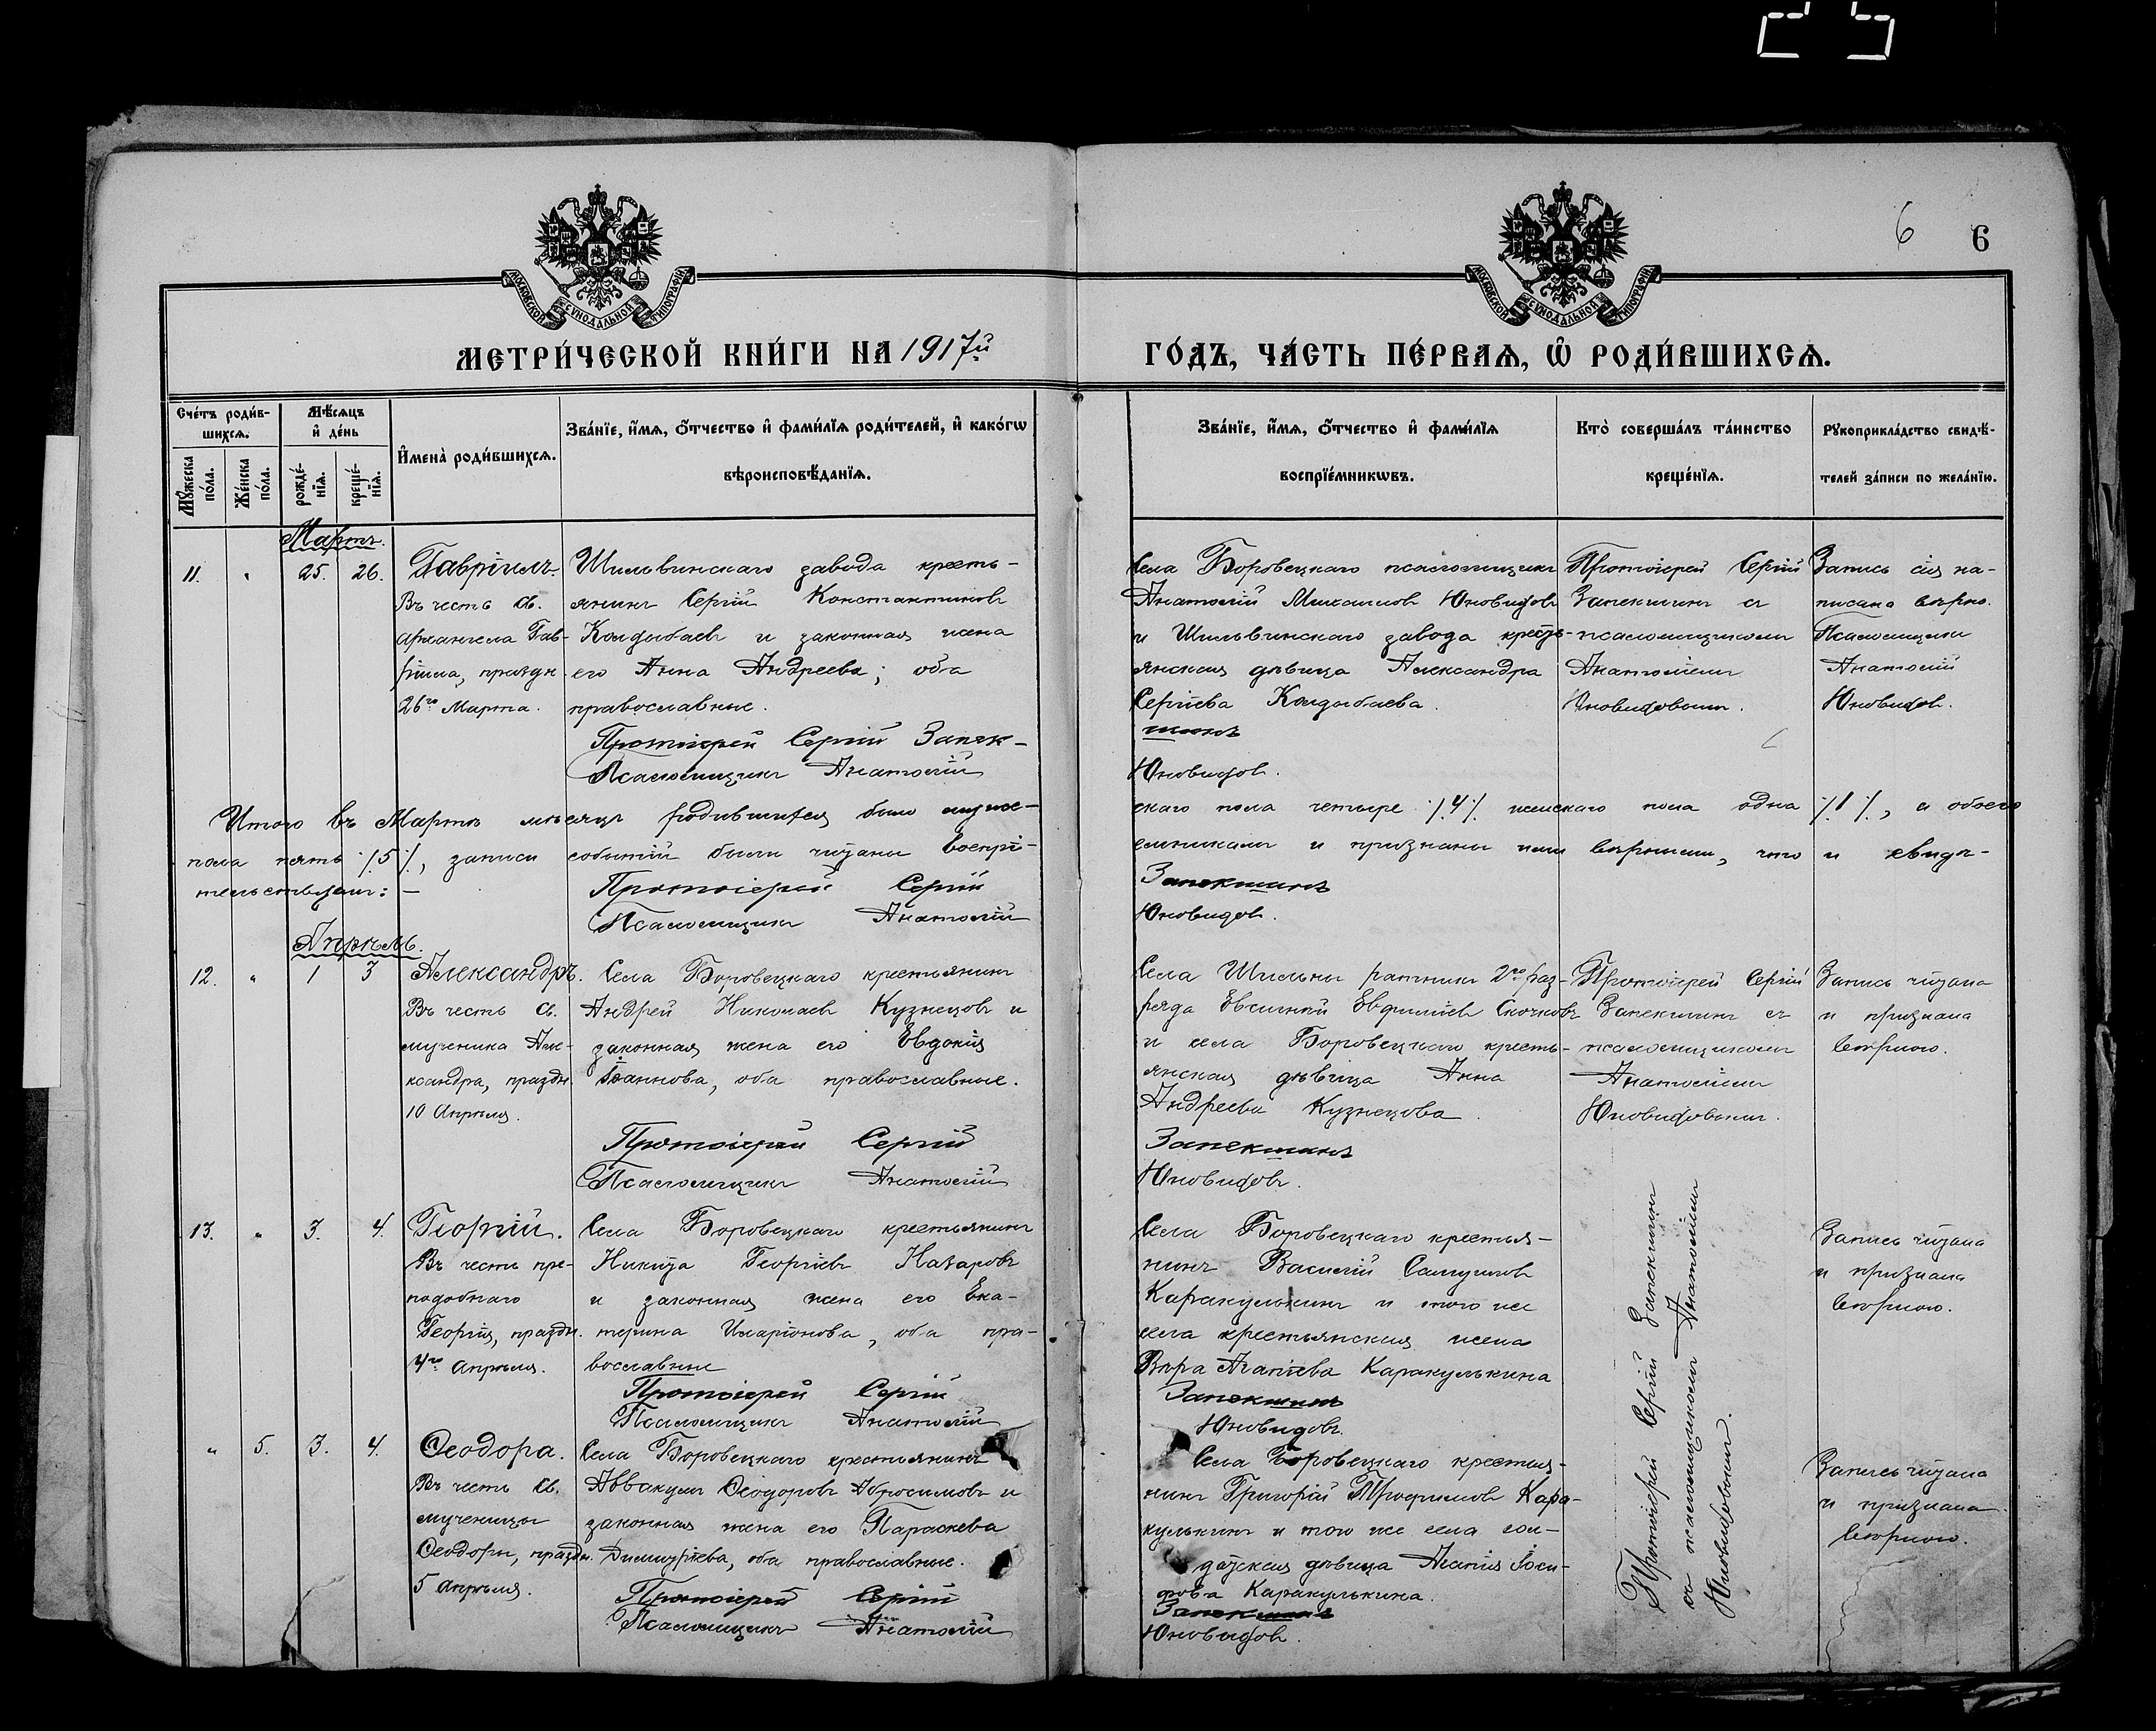 6 6
МОСКОВСКОЙ СѴНОДАЛЬНОЙ ТИПОГРАФІИ
МОСКОВСКОЙ СѴНОДАЛЬНОЙ ТИПОГРАФІИ
МЕТРИ́ЧЕСКОЙ КНИ́ГИ НА 1917й
ГО́ДЪ, ЧА́СТЬ ПЕ́РВАѦ, Ѿ РОДИ́ВШИХСѦ.
Сче́тъ роди́в-
шихсѧ.
Мѣ́сѧцъ
и҆ де́нь
Мꙋ́жеска
по́ла.
Же́нска
по́ла.
рожде́-
нїѧ.
креще́-
нїѧ.
И҆мена̀ роди́вшихсѧ.
Зва́нїе, и҆́мѧ, ѻ҆́тчество и҆ фами́лїѧ роди́телей, и҆ како́гѡ
вѣроисповѣ́данїѧ.
Зва́нїе, и҆́мѧ, ѻ҆́тчество и҆ фами́лїѧ
воспрїе́мникѡвъ.
Кто̀ соверша́лъ та́инство
креще́нїѧ.
Рꙋкоприкла́дство свидѣ́-
телей за́писи по жела́нїю.
Мартъ.
11. " 25. 26.
Гавріилъ.
Въ честь св.
архангела Гав-
ріила, праздн.
26го Марта.
Шильвинскаго завода кресть-
янинъ Сергій Константиновъ
Колдыбаевъ и законная жена
его Анна Андреева; оба
православные.
Протоіерей Сергій Запек-
Псаломщикъ Анатолій
Села Боровецкаго псаломщикъ
Анатолій Михаиловъ Юновидовъ
и Шильвинскаго завода кресть-
янская дѣвица Александра
Сергіева Колдыбаева.
шинъ
Юновидовъ.
Протоіерей Сергій
Запекшинъ съ
псаломщикомъ
Анатоліемъ
Юновидовымъ.
Запись сія на-
писана вѣрно.
Псаломщикъ
Анатолій
Юновидовъ.
Итого въ Мартѣ мѣсяцѣ родившихся было муже-
скаго пола четыре /.4./ женскаго пола одна /.1./, а обоего
пола пять /.5./, записи событій были читаны воспрі-
емниками и признаны ими вѣрными, что и свидѣ-
тельствуемъ: —
Протоіерей Сергій
Запекшинъ
Псаломщикъ Анатолій
Юновидовъ.
Апрѣль.
12. " 1 3
Александръ.
Въ честь св.
мученика Але-
ксандра, праздн.
10 Апрѣля.
Села Боровецкаго крестьянинъ
Андрей Николаевъ Кузнецовъ и
законная жена его Евдокія
Іоаннова, оба православные.
Протоіерей Сергій
Псаломщикъ Анатолій
Села Шильны ратникъ 2го раз-
ряда Евсигній Евфиміевъ Скочковъ
и села Боровецкаго кресть-
янская дѣвица Анна
Андреева Кузнецова.
Запекшинъ
Юновидовъ.
Протоіерей Сергій
Запекшинъ съ
псаломщикомъ
Анатоліемъ
Юновидовымъ.
Запись читана
и признана
вѣрною.
13. " 3. 4.
Георгій.
Въ честь пре-
подобнаго
Георгія, праздн.
4го апрѣля.
Села Боровецкаго крестьянинъ
Никита Георгіевъ Назаровъ
и законная жена его Ека-
терина Иларіонова, оба пра-
вославные
Протоіерей Сергій
Псаломщикъ Анатолій
Села Боровецкаго крестья-
нинъ Василій Самуиловъ
Каракулькинъ и того же
села крестьянская жена
Вѣра Агапіева Каракулькина
Запекшинъ
Юновидовъ.
Запись читана
и признана
вѣрною.
" 5. 3. 4.
Ѳеодора.
Въ честь св.
мученицы
Ѳеодоры, праздн.
5 апрѣля.
Села Боровецкаго крестьянинъ
Аввакумъ Ѳеодоровъ Абросимовъ и
законная жена его Параскева
Димитріева, оба православные.
Протоіерей Сергій
Псаломщикъ Анатолій
Села Боровецкаго крестья-
нинъ Григорій Трофимовъ Кара-
кулькинъ и того же села сол-
датская дѣвица Агапія Іоси-
фова Каракулькина.
Запекшинъ
Юновидовъ.
Протоіерей Сергій Запекшинъ
съ псаломщикомъ Анатоліемъ
Юновидовымъ.
Запись читана
и признана
вѣрною.